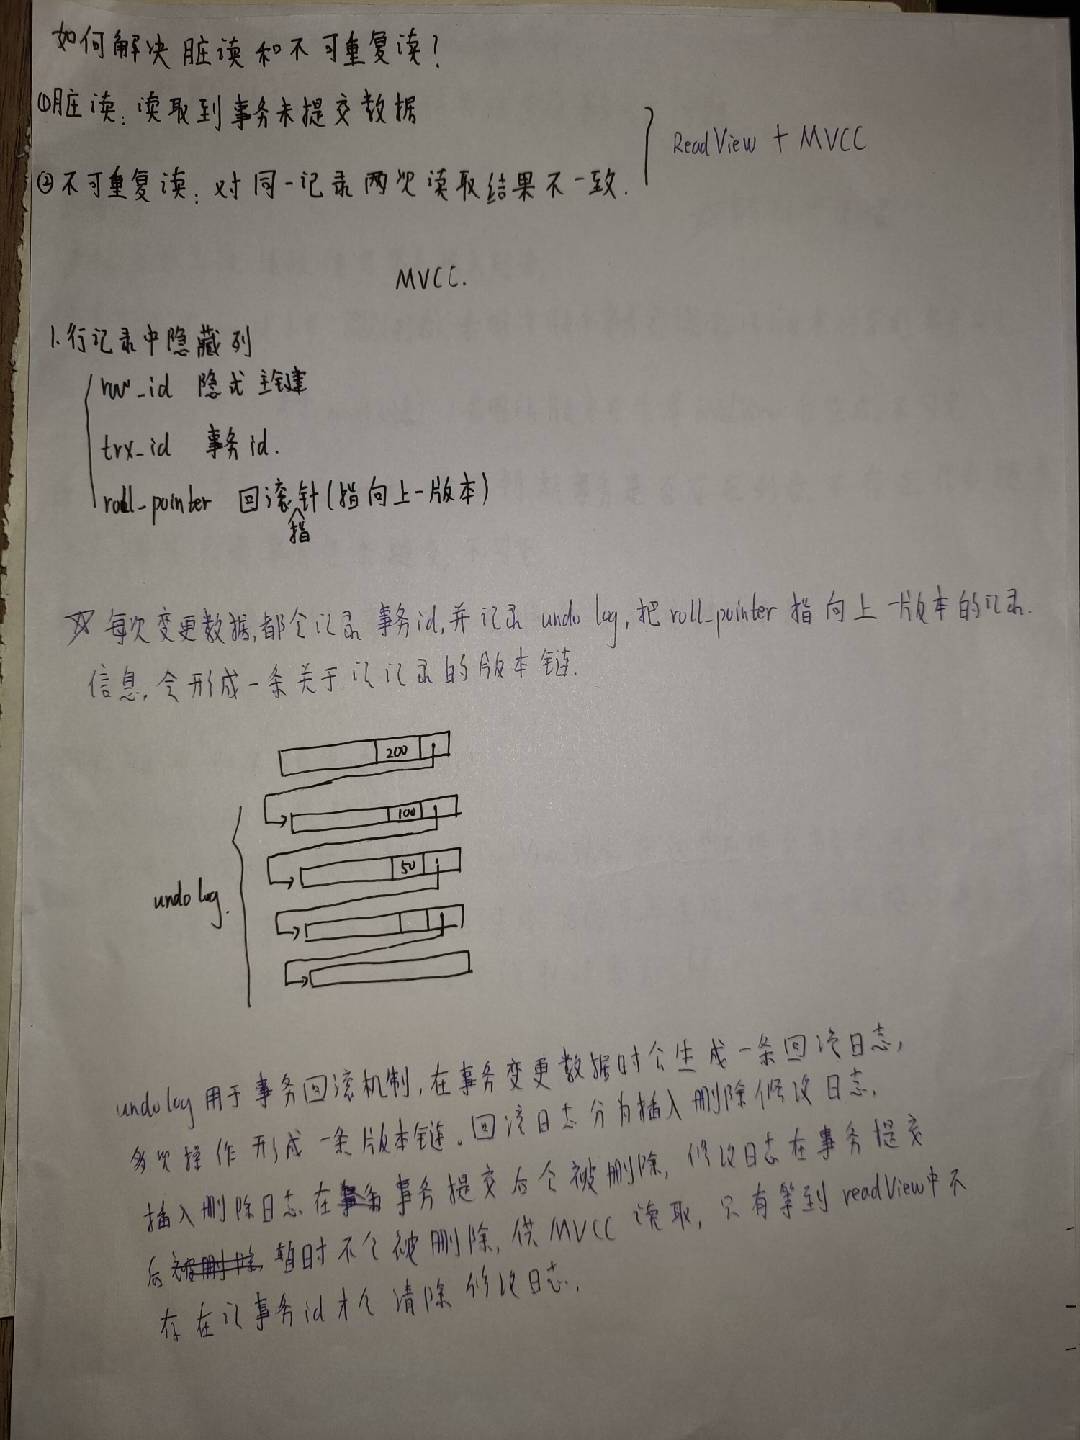 如何解决脏读和不可重复读?
①脏读:读取到事务未提交数据
②不可重复读:对同一记录两次读取结果不一致.
ReadView + MVCC
MVCC.
1.行记录中隐藏列
row_id 隐式主键
trx_id 事务id.
roll_pointer 回滚指针(指向上一版本)
☆每次变更数据,都会记录事务id,并记录 undo log,把roll_pointer指向上一版本的记录.
信息,会形成一条关于该记录的版本链.
200
100
50
undo log.
undo log用于事务回滚机制,在事务变更数据时会生成一条回滚日志,
多次操作形成一条版本链。回滚日志分为插入删除修改日志,
插入删除日志在事务提交后会被删除,修改日志在事务提交
后暂时不会被删除,供MVCC读取,只有等到readView中不
存在该事务id才会清除修改日志.